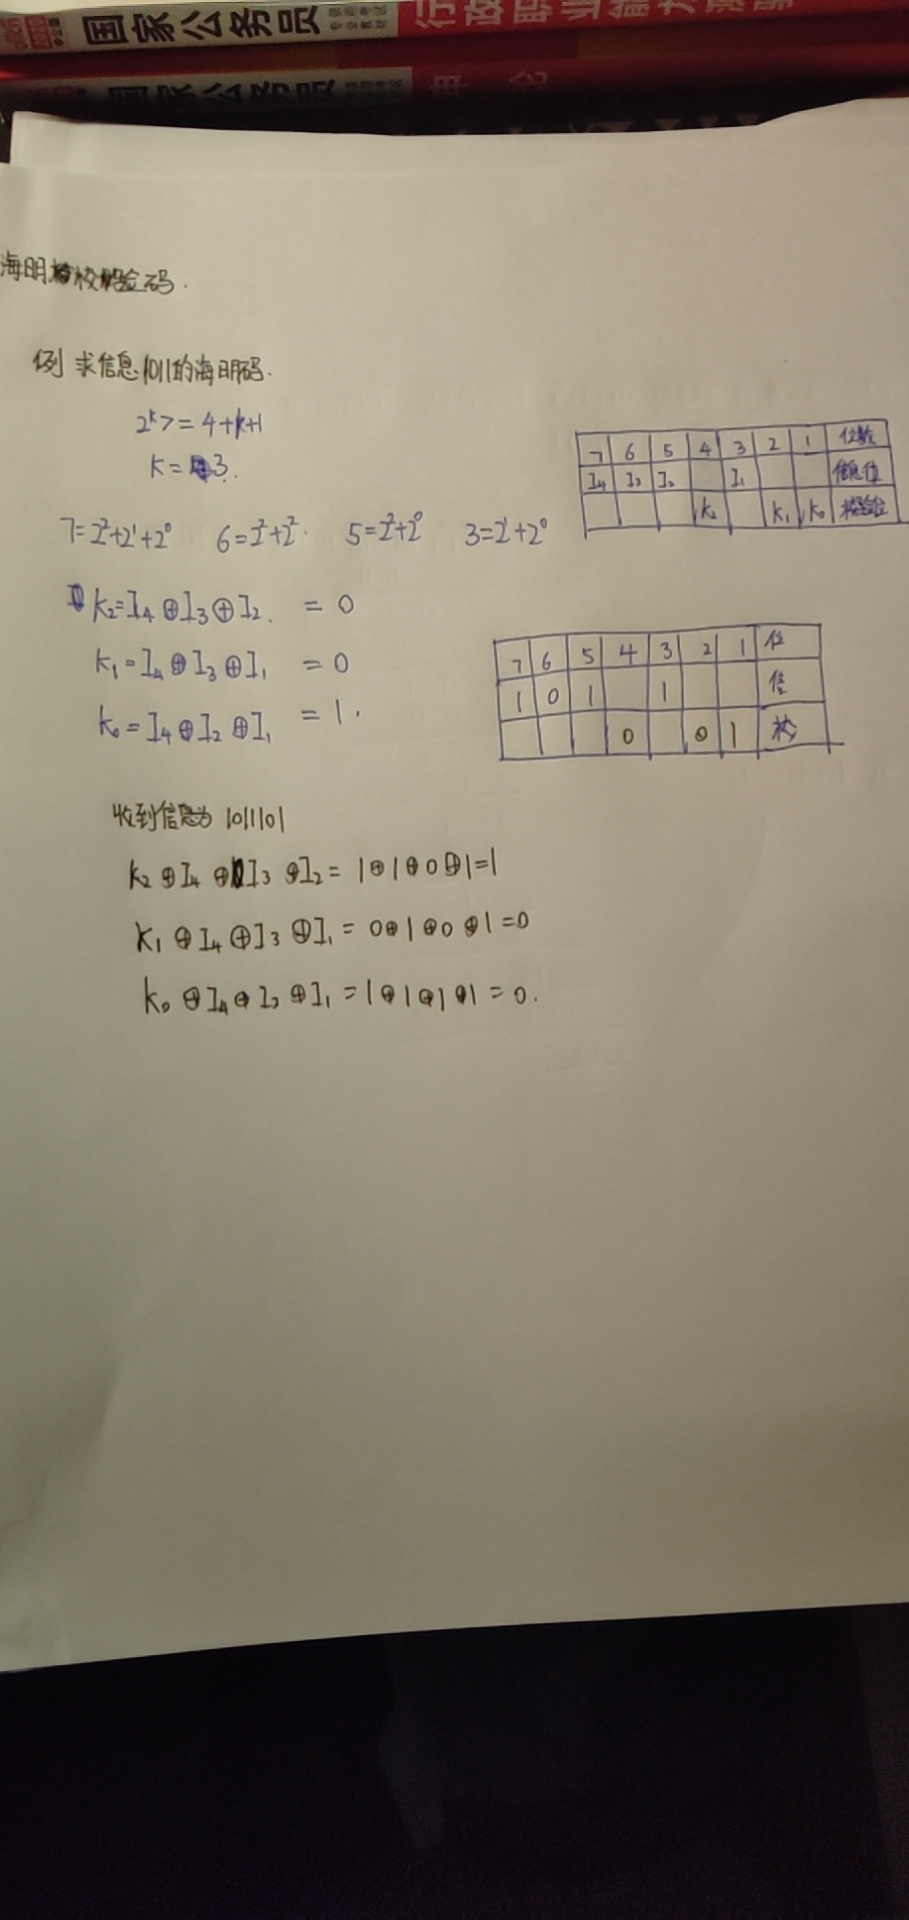 国家公务员
行政职业能力测验
国家公务员
申 论
海明校验码.
例 求信息1011的海明码.
2^k>=4+k+1
k=3.
7 6 5 4 3 2 1 位数
I4 I3 I2 I1 信息位
k2 k1 k0 校验位
7=2²+2¹+2⁰ 6=2²+2² 5=2²+2⁰ 3=2¹+2⁰
k2=I4⊕I3⊕I2. =0
k1=I4⊕I3⊕I1 =0
k0=I4⊕I2⊕I1 =1.
7 6 5 4 3 2 1 位
1 0 1 1 信
0 0 1 校
收到信息为 1011101
k2⊕I4⊕I3⊕I2=1⊕1⊕0⊕1=1
k1⊕I4⊕I3⊕I1=0⊕1⊕0⊕1=0
k0⊕I4⊕I2⊕I1=1⊕1⊕1⊕1=0.